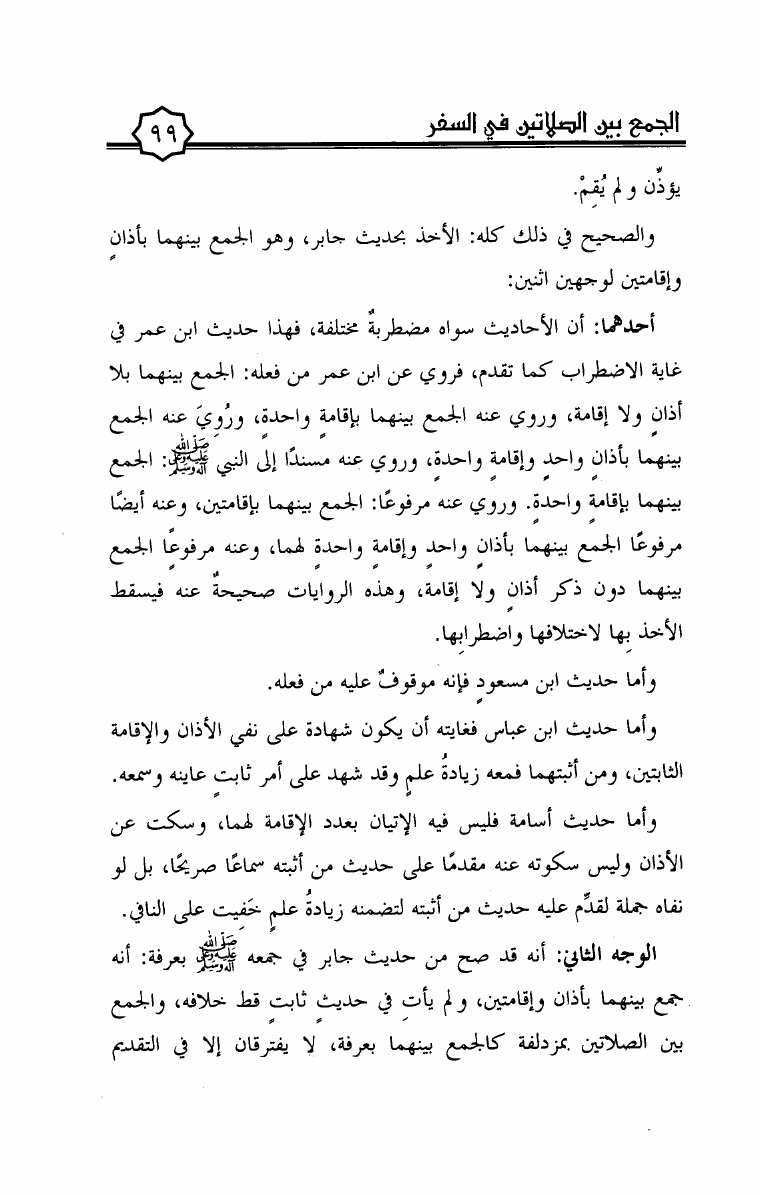 الجمع بين الصلاتين في السفر
٩٩
يؤذِّن ولم يُقِمْ.
والصحيح في ذلك كله: الأخذ بحديث جابر، وهو الجمع بينهما بأذانٍ
وإقامتين لوجهين اثنين:
أحدهما: أن الأحاديث سواه مضطربةٌ مختلفة، فهذا حديث ابن عمر في
غاية الاضطراب كما تقدم، فروي عن ابن عمر من فعله: الجمع بينهما بلا
أذانٍ ولا إقامة، وروي عنه الجمع بينهما بإقامةٍ واحدةٍ، ورُوِيَ عنه الجمع
بينهما بأذانٍ واحدٍ وإقامةٍ واحدةٍ، وروي عنه مسندًا إلى النبي ﷺ: الجمع
بينهما بإقامةٍ واحدةٍ. وروي عنه مرفوعًا: الجمع بينهما بإقامتين، وعنه أيضًا
مرفوعًا الجمع بينهما بأذانٍ واحدٍ وإقامةٍ واحدةٍ لهما، وعنه مرفوعًا الجمع
بينهما دون ذكر أذانٍ ولا إقامة، وهذه الروايات صحيحةٌ عنه فيسقط
الأخذ بِها لاختلافها واضطرابِها.
وأما حديث ابن مسعودٍ فإنه موقوفٌ عليه من فعله.
وأما حديث ابن عباس فغايته أن يكون شهادة على نفي الأذان والإقامة
الثابتين، ومن أثبتهما فمعه زيادةُ علمٍ وقد شهد على أمر ثابتٍ عاينه وسمعه.
وأما حديث أسامة فليس فيه الإتيان بعدد الإقامة لهما، وسكت عن
الأذان وليس سكوته عنه مقدمًا على حديث من أثبته سماعًا صريحًا، بل لو
نفاه جملة لقدِّم عليه حديث من أثبته لتضمنه زيادةُ علمٍ خَفِيت على النافي.
الوجه الثاني: أنه قد صح من حديث جابر في جمعه ﷺ بعرفة: أنه
جمع بينهما بأذان وإقامتين، ولم يأتِ في حديثٍ ثابتٍ قط خلافه، والجمع
بين الصلاتين بمزدلفة كالجمع بينهما بعرفة، لا يفترقان إلا في التقديم